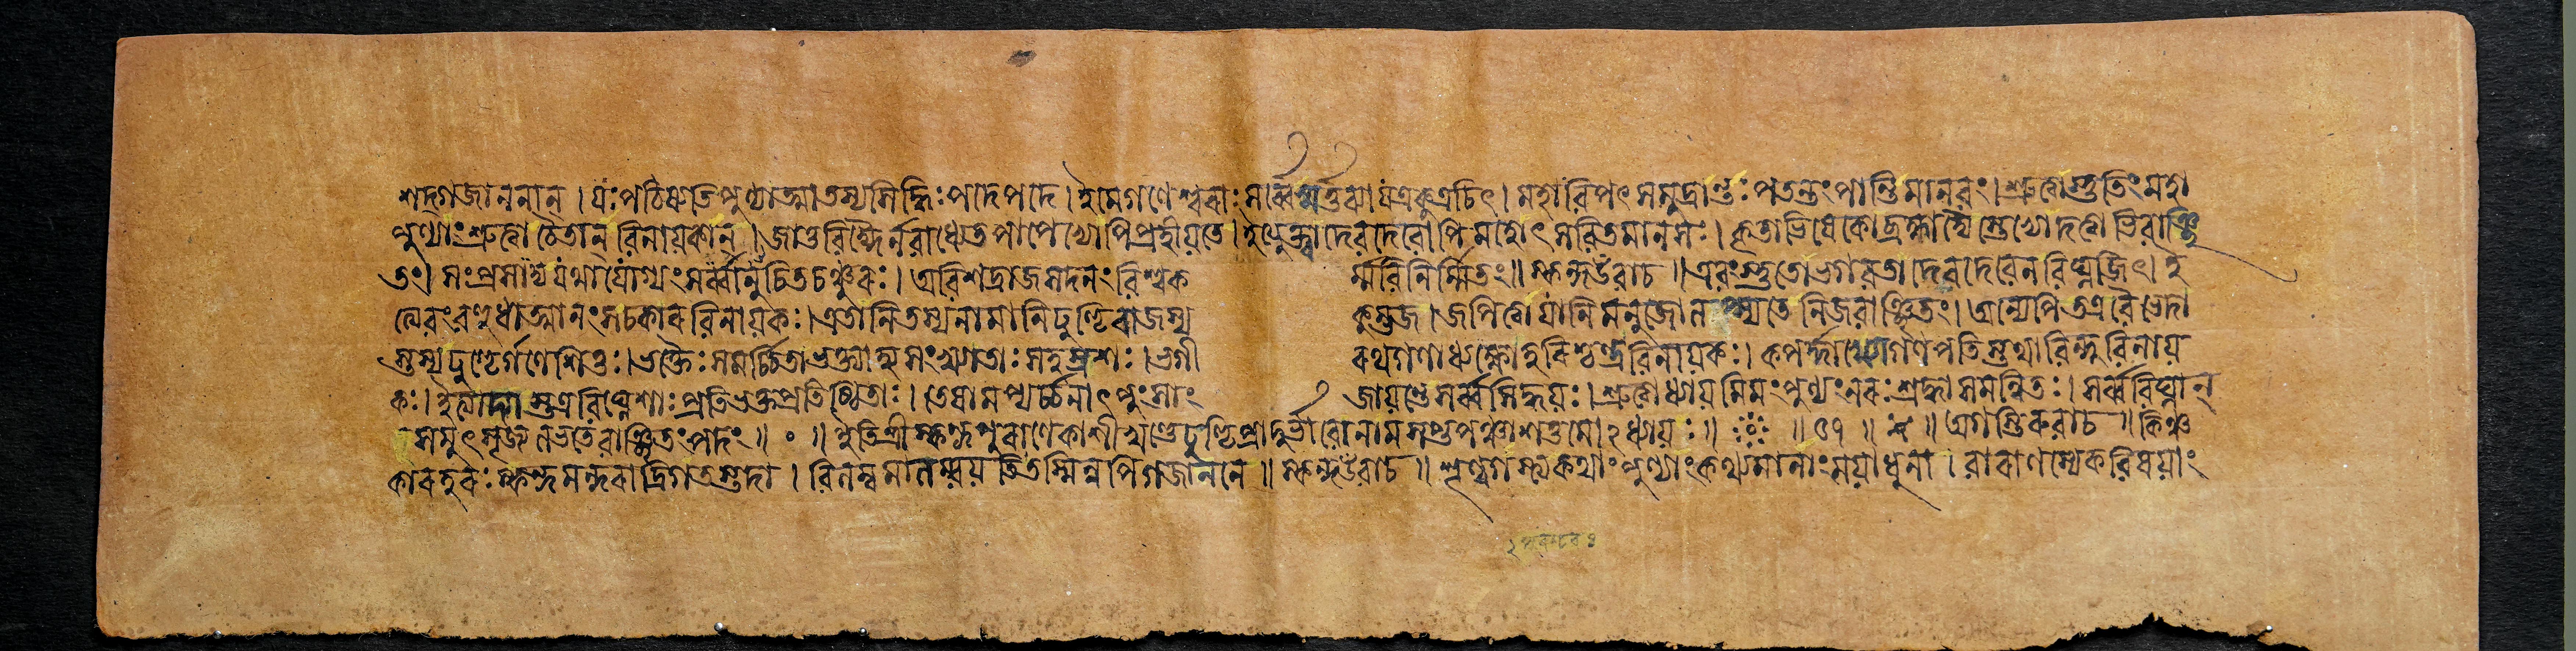 শদ্গজাননান্ । যঃ পঠিষ্যতি পুণ্যাত্মা তস্য সিদ্ধিঃ পদে পদে । ইমে গণেশ্বরাঃ সর্ব্বে স্মর্ত্তব্যা যত্র কুত্রচিৎ । মহাবিপৎসমুদ্রান্তঃ পতন্তং পান্তি মানবং । শ্রুত্বা স্তুতিং মহা
পুণ্যাং শ্রুত্বা চৈতান্ বিনায়কান্ । জাতু বিঘ্নৈর্ন বাধ্যেত পাপেভ্যোপি প্রহীয়তে । ইত্যুক্ত্বা দেবদেবোপি মহোৎসবিতমানসঃ । কৃতাভিষেকো ব্রহ্মাদ্যৈস্তেভ্যো দত্ত্বাভিবাঞ্ছি
তং । সংপ্রসাদ্য যথাযোগ্যং সর্ব্বানুচিতচঞ্চুরঃ । অবিশদ্রাজসদনং বিশ্বক র্ম্মবিনির্ম্মিতং ॥ স্কন্দ উবাচ ॥ এবং স্তুতো ভগবতা দেবদেবেন বিঘ্নজিৎ । ই
ত্থং বহুধাত্মানং স চকার বিনায়কঃ । এতানি তস্য নামানি ঢুণ্ঢিরাজস্য কুম্ভজ । জপিত্বা যানি মনুজো লপ্স্যতে নিজবাঞ্ছিতং । অন্যেপি তত্র বৈ ভেদা
স্তস্য ঢুণ্ঢের্গণেশিতুঃ । ভক্তৈঃ সমর্চ্চিতা ভক্ত্যা হ্যসংখ্যাতাঃ সহস্রশঃ । ভগী রথগণাধ্যক্ষো হরিশ্চন্দ্রবিনায়কঃ । কপর্দ্দাখ্যো গণপতিস্তথা বিন্দুবিনায়
কঃ । ইত্যাদ্যাস্তত্র বিঘ্নেশাঃ প্রতিভক্তপ্রতিষ্ঠিতাঃ । তেষামপ্যর্চ্চনাৎ পুংসাং জায়ন্তে সর্ব্বসিদ্ধয়ঃ । শ্রুত্বাধ্যায়মিমং পুণ্যং নরঃ শ্রদ্ধাসমন্বিতঃ । সর্ব্ববিঘ্নান্
সমুৎসৃজ্য লভতে বাঞ্ছিতং পদং ॥ ০ ॥ ইতি শ্রীস্কন্দপুরাণে কাশীখণ্ডে ঢুণ্ঢিপ্রাদুর্ভাবো নাম সপ্তপঞ্চাশত্তমোঽধ্যায়ঃ ॥ ৫৭ ॥ অগস্তিরুবাচ ॥ কিঞ্চ
কার হরঃ স্কন্দ মন্দরাদ্রিগতস্তদা । বিলম্বমালম্বয়তি তস্মিন্নপি গজাননে ॥ স্কন্দ উবাচ ॥ শৃণ্বগস্ত্য কথাং পুণ্যাং কথ্যমানাং ময়াধুনা । বারাণস্যেকবিষয়াং